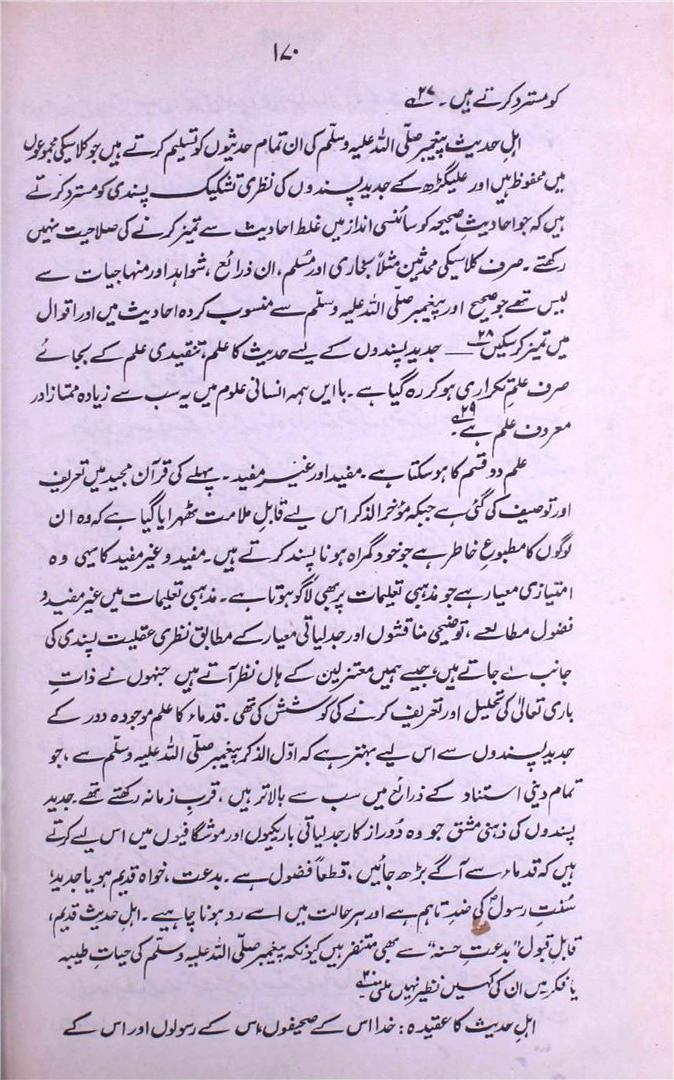 ۱۷۰
کو مسترد کرتے ہیں۔ ۲۷
اہل حدیث پیغمبر صلّی اللہ علیہ وسلّم کی ان تمام حدیثوں کو تسلیم کرتے ہیں جو کلاسیکی مجموعوں
میں محفوظ ہیں اور علیگڑھ کے جدید پسندوں کی نظری تشکیک پسندی کو مسترد کرتے
ہیں کہ جو احادیثِ صحیحہ کو سائنسی انداز میں غلط احادیث سے تمیز کرنے کی صلاحیت نہیں
رکھتے۔ صرف کلاسیکی محدثین مثلاً بخاری اور مُسلم، ان ذرائع، شواہد اور منہاجیات سے
لیس تھے جو صحیح اور پیغمبر صلّی اللہ علیہ وسلّم سے منسوب کردہ احادیث میں اور اقوال
میں تمیز کر سکیں ۲۸ — جدید پسندوں کے لیے حدیث کا علم، تنقیدی علم کے بجائے
صرف علمِ تکراری ہو کر رہ گیا ہے۔ با ایں ہمہ انسانی علوم میں یہ سب سے زیادہ ممتاز اور
معروف علم ہے۔ ۲۹
علم دو قسم کا ہو سکتا ہے۔ مفید اور غیر مفید۔ پہلے کی قرآن مجید میں تعریف
اور توصیف کی گئی ہے جبکہ مؤخر الذکر اس لیے قابلِ ملامت ٹھہرایا گیا ہے کہ وہ ان
لوگوں کا مطبوعِ خاطر ہے جو خود گمراہ ہونا پسند کرتے ہیں۔ مفید و غیر مفید کا یہی وہ
امتیازی معیار ہے جو مذہبی تعلیمات پر بھی لاگو ہوتا ہے۔ مذہبی تعلیمات میں غیر مفید و
فضول مطالعے، توضیحی مناقشوں اور جدلیاتی معیار کے مطابق نظری عقلیت پسندی کی
جانب لے جاتے ہیں، جیسے ہمیں معتزلین کے ہاں نظر آتے ہیں جنہوں نے ذاتِ
باری تعالٰی کی تحلیل اور تعریف کرنے کی کوشش کی تھی۔ قدماء کا علم موجودہ دور کے
جدید پسندوں سے اس لیے بہتر ہے کہ اوّل الذکر پیغمبر صلّی اللہ علیہ وسلّم سے، جو
تمام دینی استناد کے ذرائع میں سب سے بالاتر ہیں، قربِ زمانہ رکھتے تھے۔ جدید
پسندوں کی ذہنی مشق جو وہ دُور از کار جدلیاتی باریکیوں اور موشگافیوں میں اس لیے کرتے
ہیں کہ قدماء سے آگے بڑھ جائیں، قطعاً فضول ہے۔ بدعت، خواہ قدیم ہو یا جدید؛
سُنتِ رسولؐ کی ضدِ تاہم ہے اور ہر حالت میں اسے رد ہونا چاہیے۔ اہلِ حدیث قدیم،
قابلِ قبول "بدعتِ حسنہ" سے بھی متنفر ہیں کیونکہ پیغمبر صلّی اللہ علیہ وسلّم کی حیاتِ طیبہ
یا فکر میں ان کی کہیں نظیر نہیں ملتی۔ ۳۰
اہلِ حدیث کا عقیدہ: خدا اس کے صحیفوں، اس کے رسولوں اور اس کے